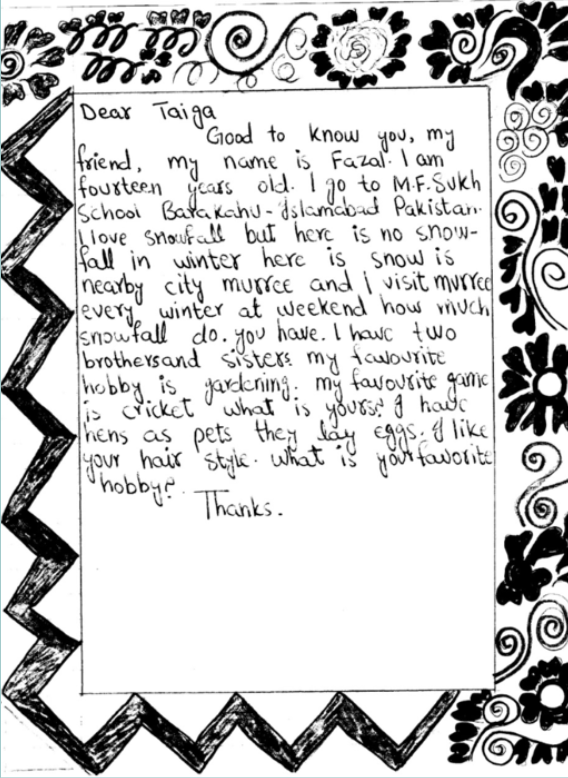 Dear Taiga
Good to know you, my
friend, my name is Fazal. I am
fourteen years old. I go to M.F.Sukh
School Barakahu - Islamabad Pakistan.
I love snowfall but here is no snow-
fall in winter here is snow is
nearby city murree and I visit murree
every winter at weekend how much
snowfall do. you have. I have two
brothersand sisters my favourite
hobby is gardening. my favourite game
is cricket what is yours? I have
hens as pets they lay eggs. I like
your hair style. what is your favorite
hobby?.
Thanks.